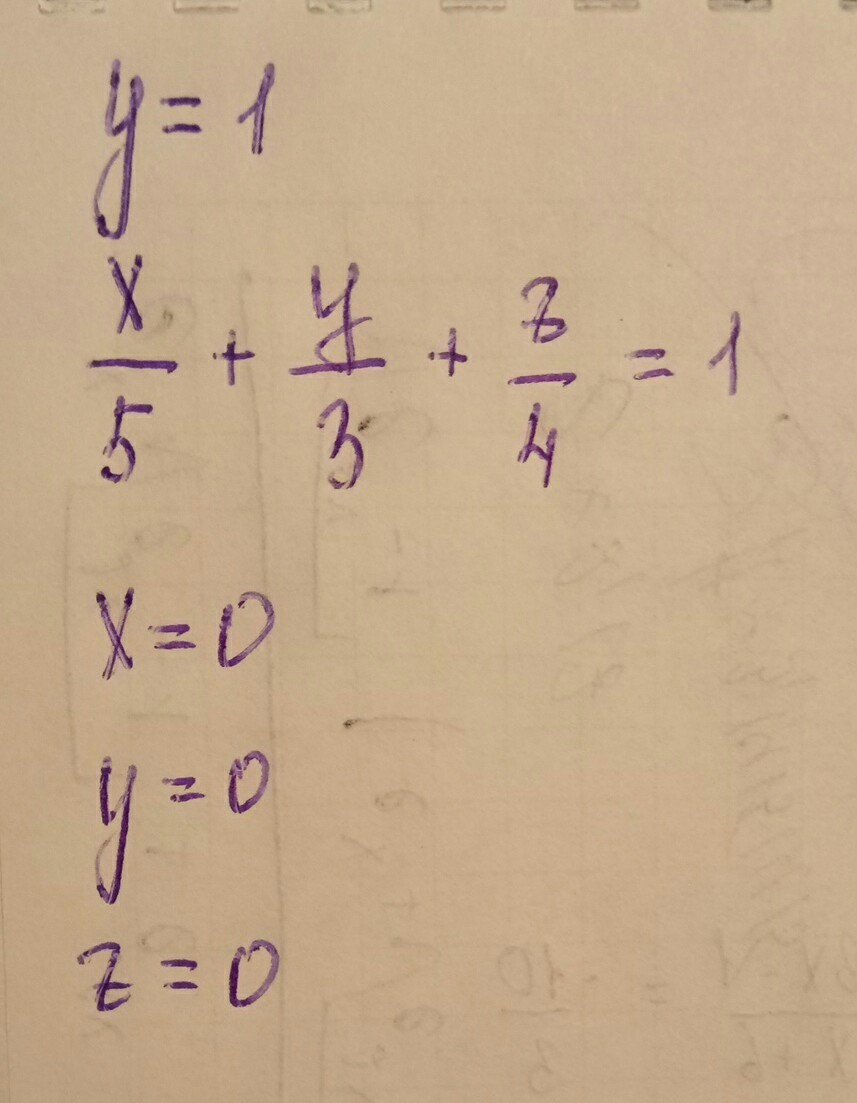 y = 1
x/5 + y/3 + z/4 = 1
x = 0
y = 0
z = 0